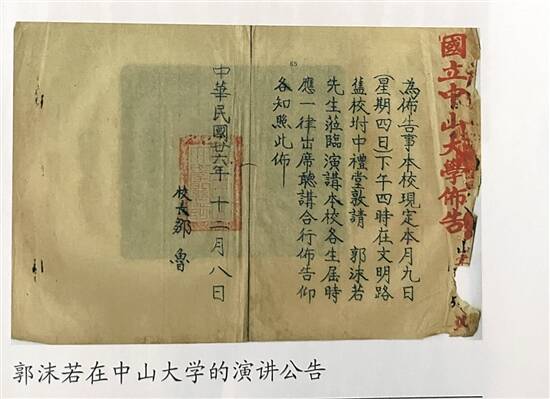 國立中山大學佈告
為佈告事本校現定本月九日
(星期四日)下午四時在文明路
舊校坿中禮堂敦請 郭沫若
先生蒞臨演講本校各生屆時
應一律出席聽講合行佈告仰
各知照此佈
65
中華民國廿六年 十二月八日
校長鄒 魯
郭沫若在中山大学的演讲公告